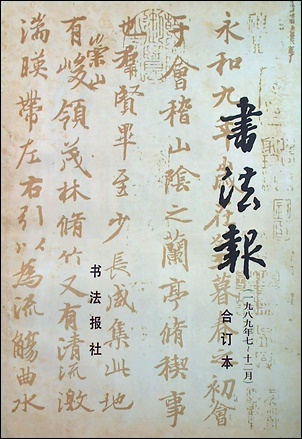 書法報
(一九八九年七-十二月)
合订本
书法报社
永和九年歲在癸丑暮春之初會
于會稽山陰之蘭亭脩禊事
也群賢畢至少長咸集此地
有崇山峻領茂林脩竹又有清流激
湍暎帶左右引以為流觴曲水